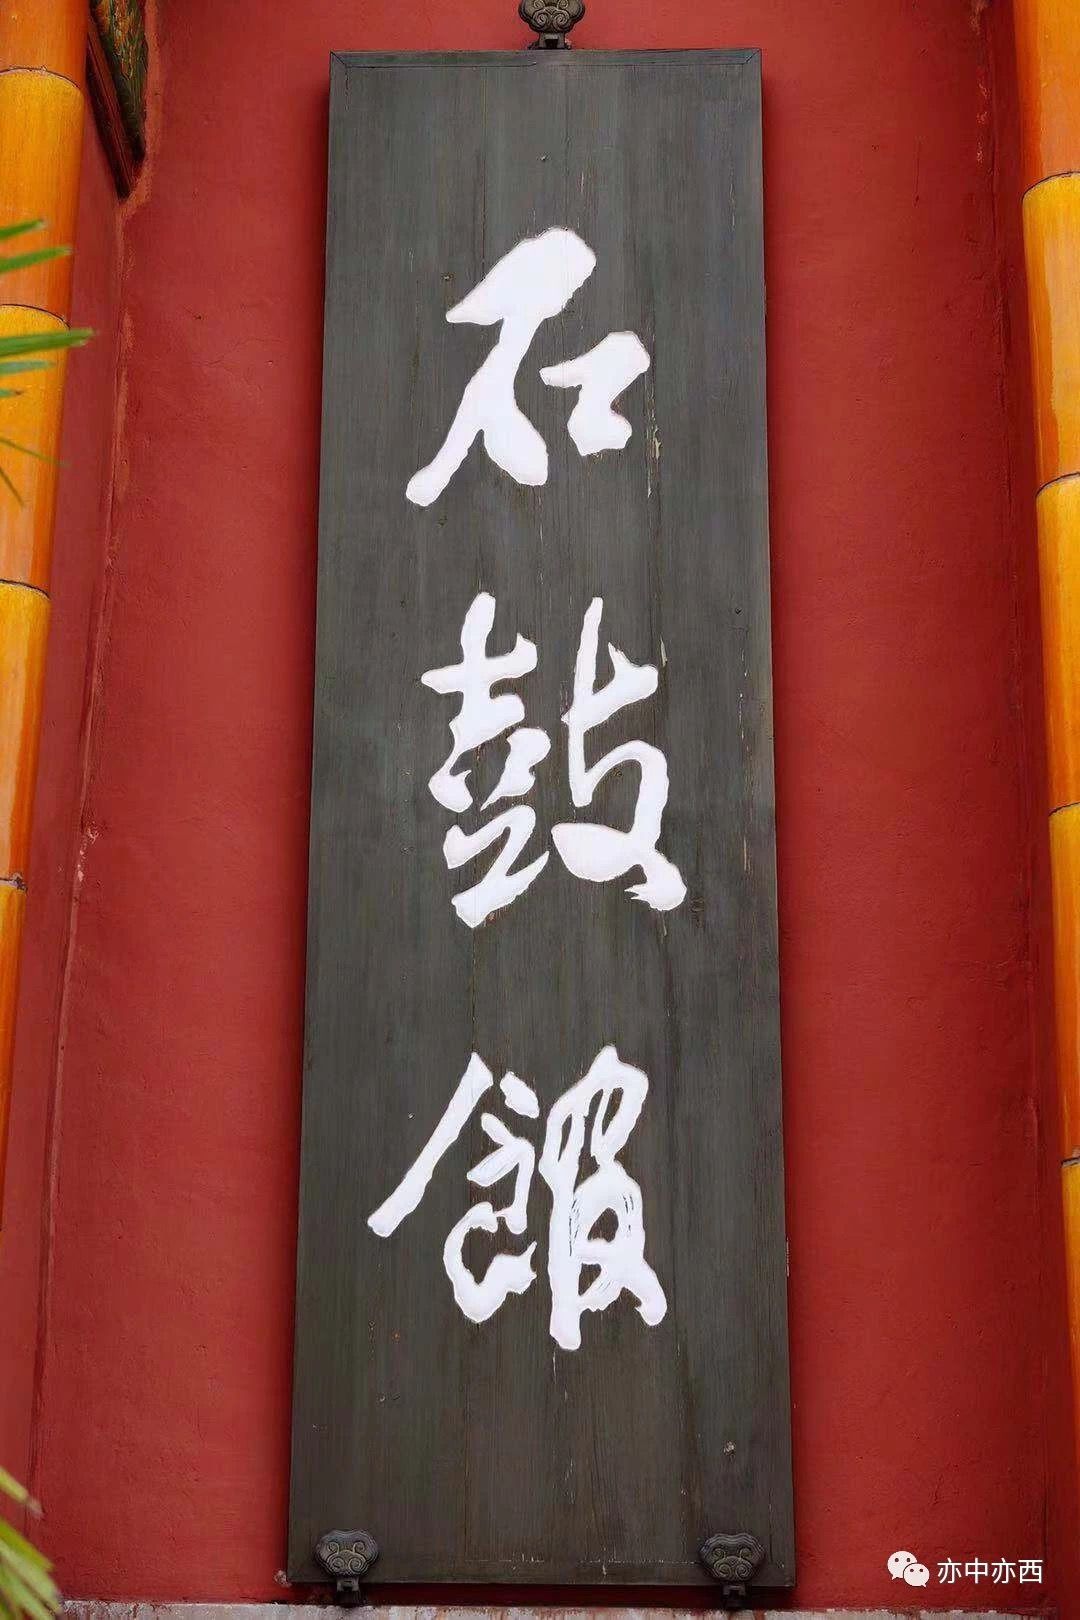 石鼓館
亦中亦西